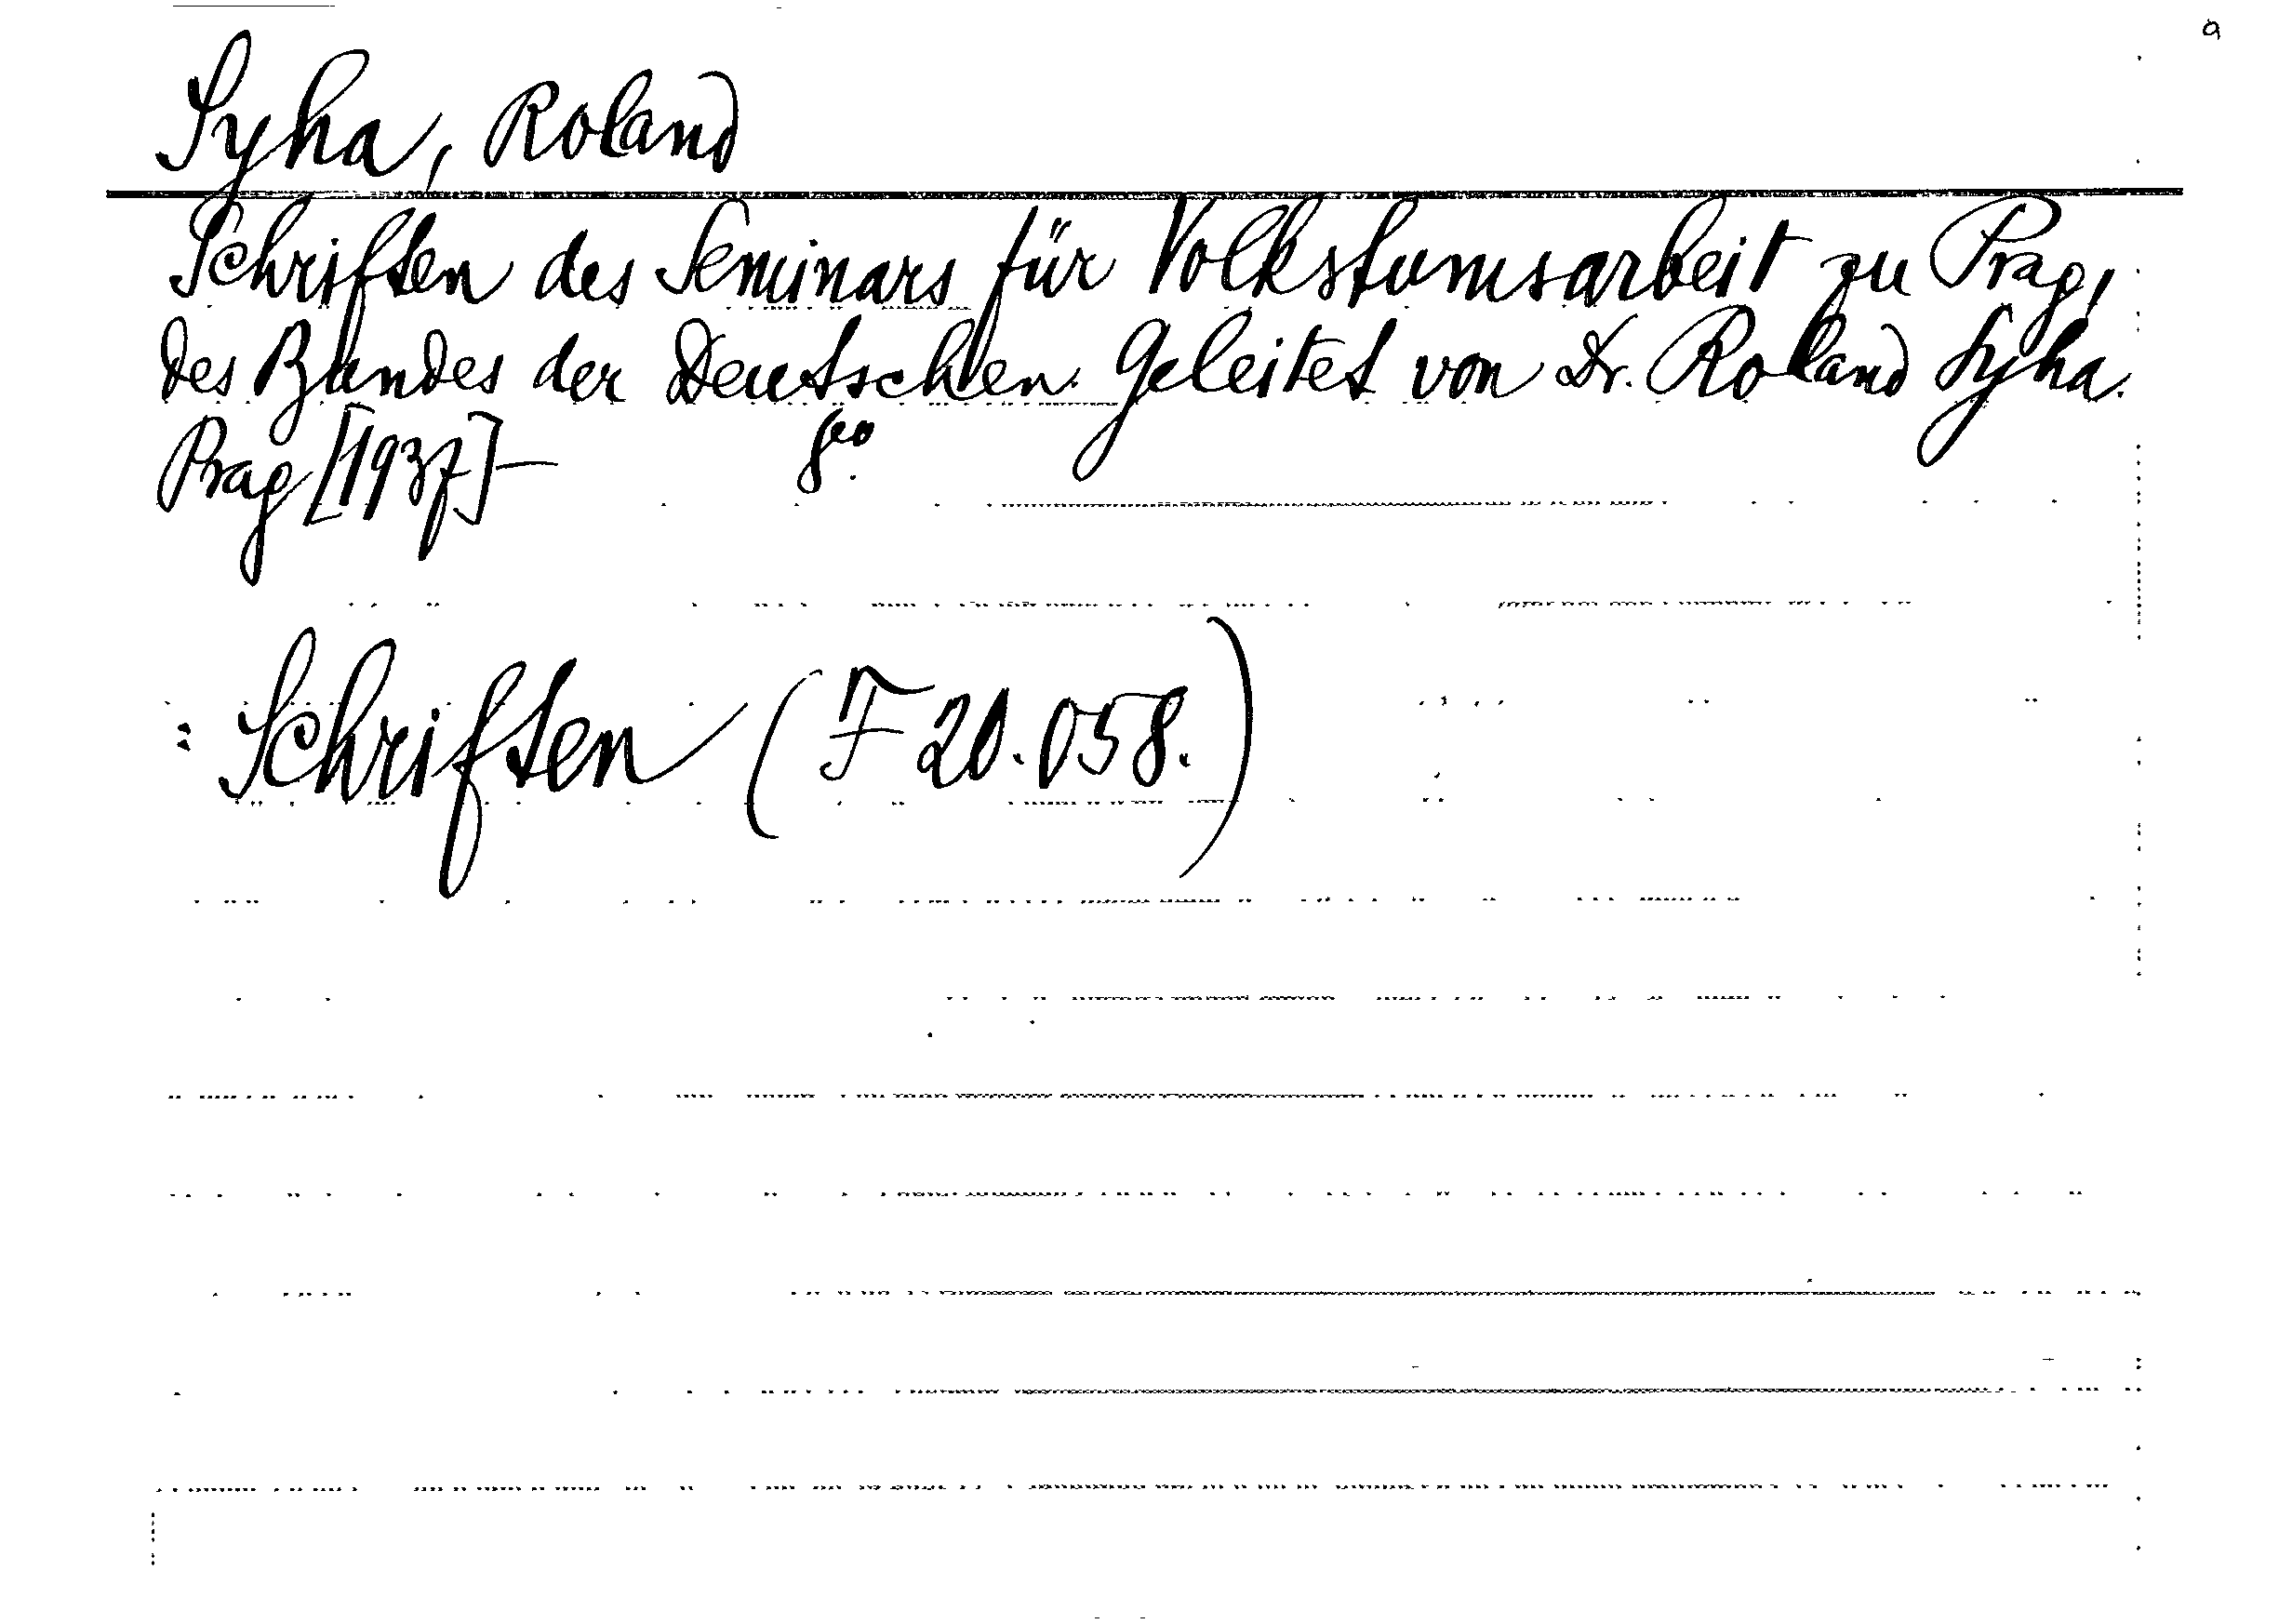 a
Syha, Roland
Schriften des Seminars für Volkstumsarbeit zu Prag,
des Bundes der Deutschen. Geleitet von Dr. Roland Syha.
Prag [1937]— 8°.
: Schriften (F 20.058.)